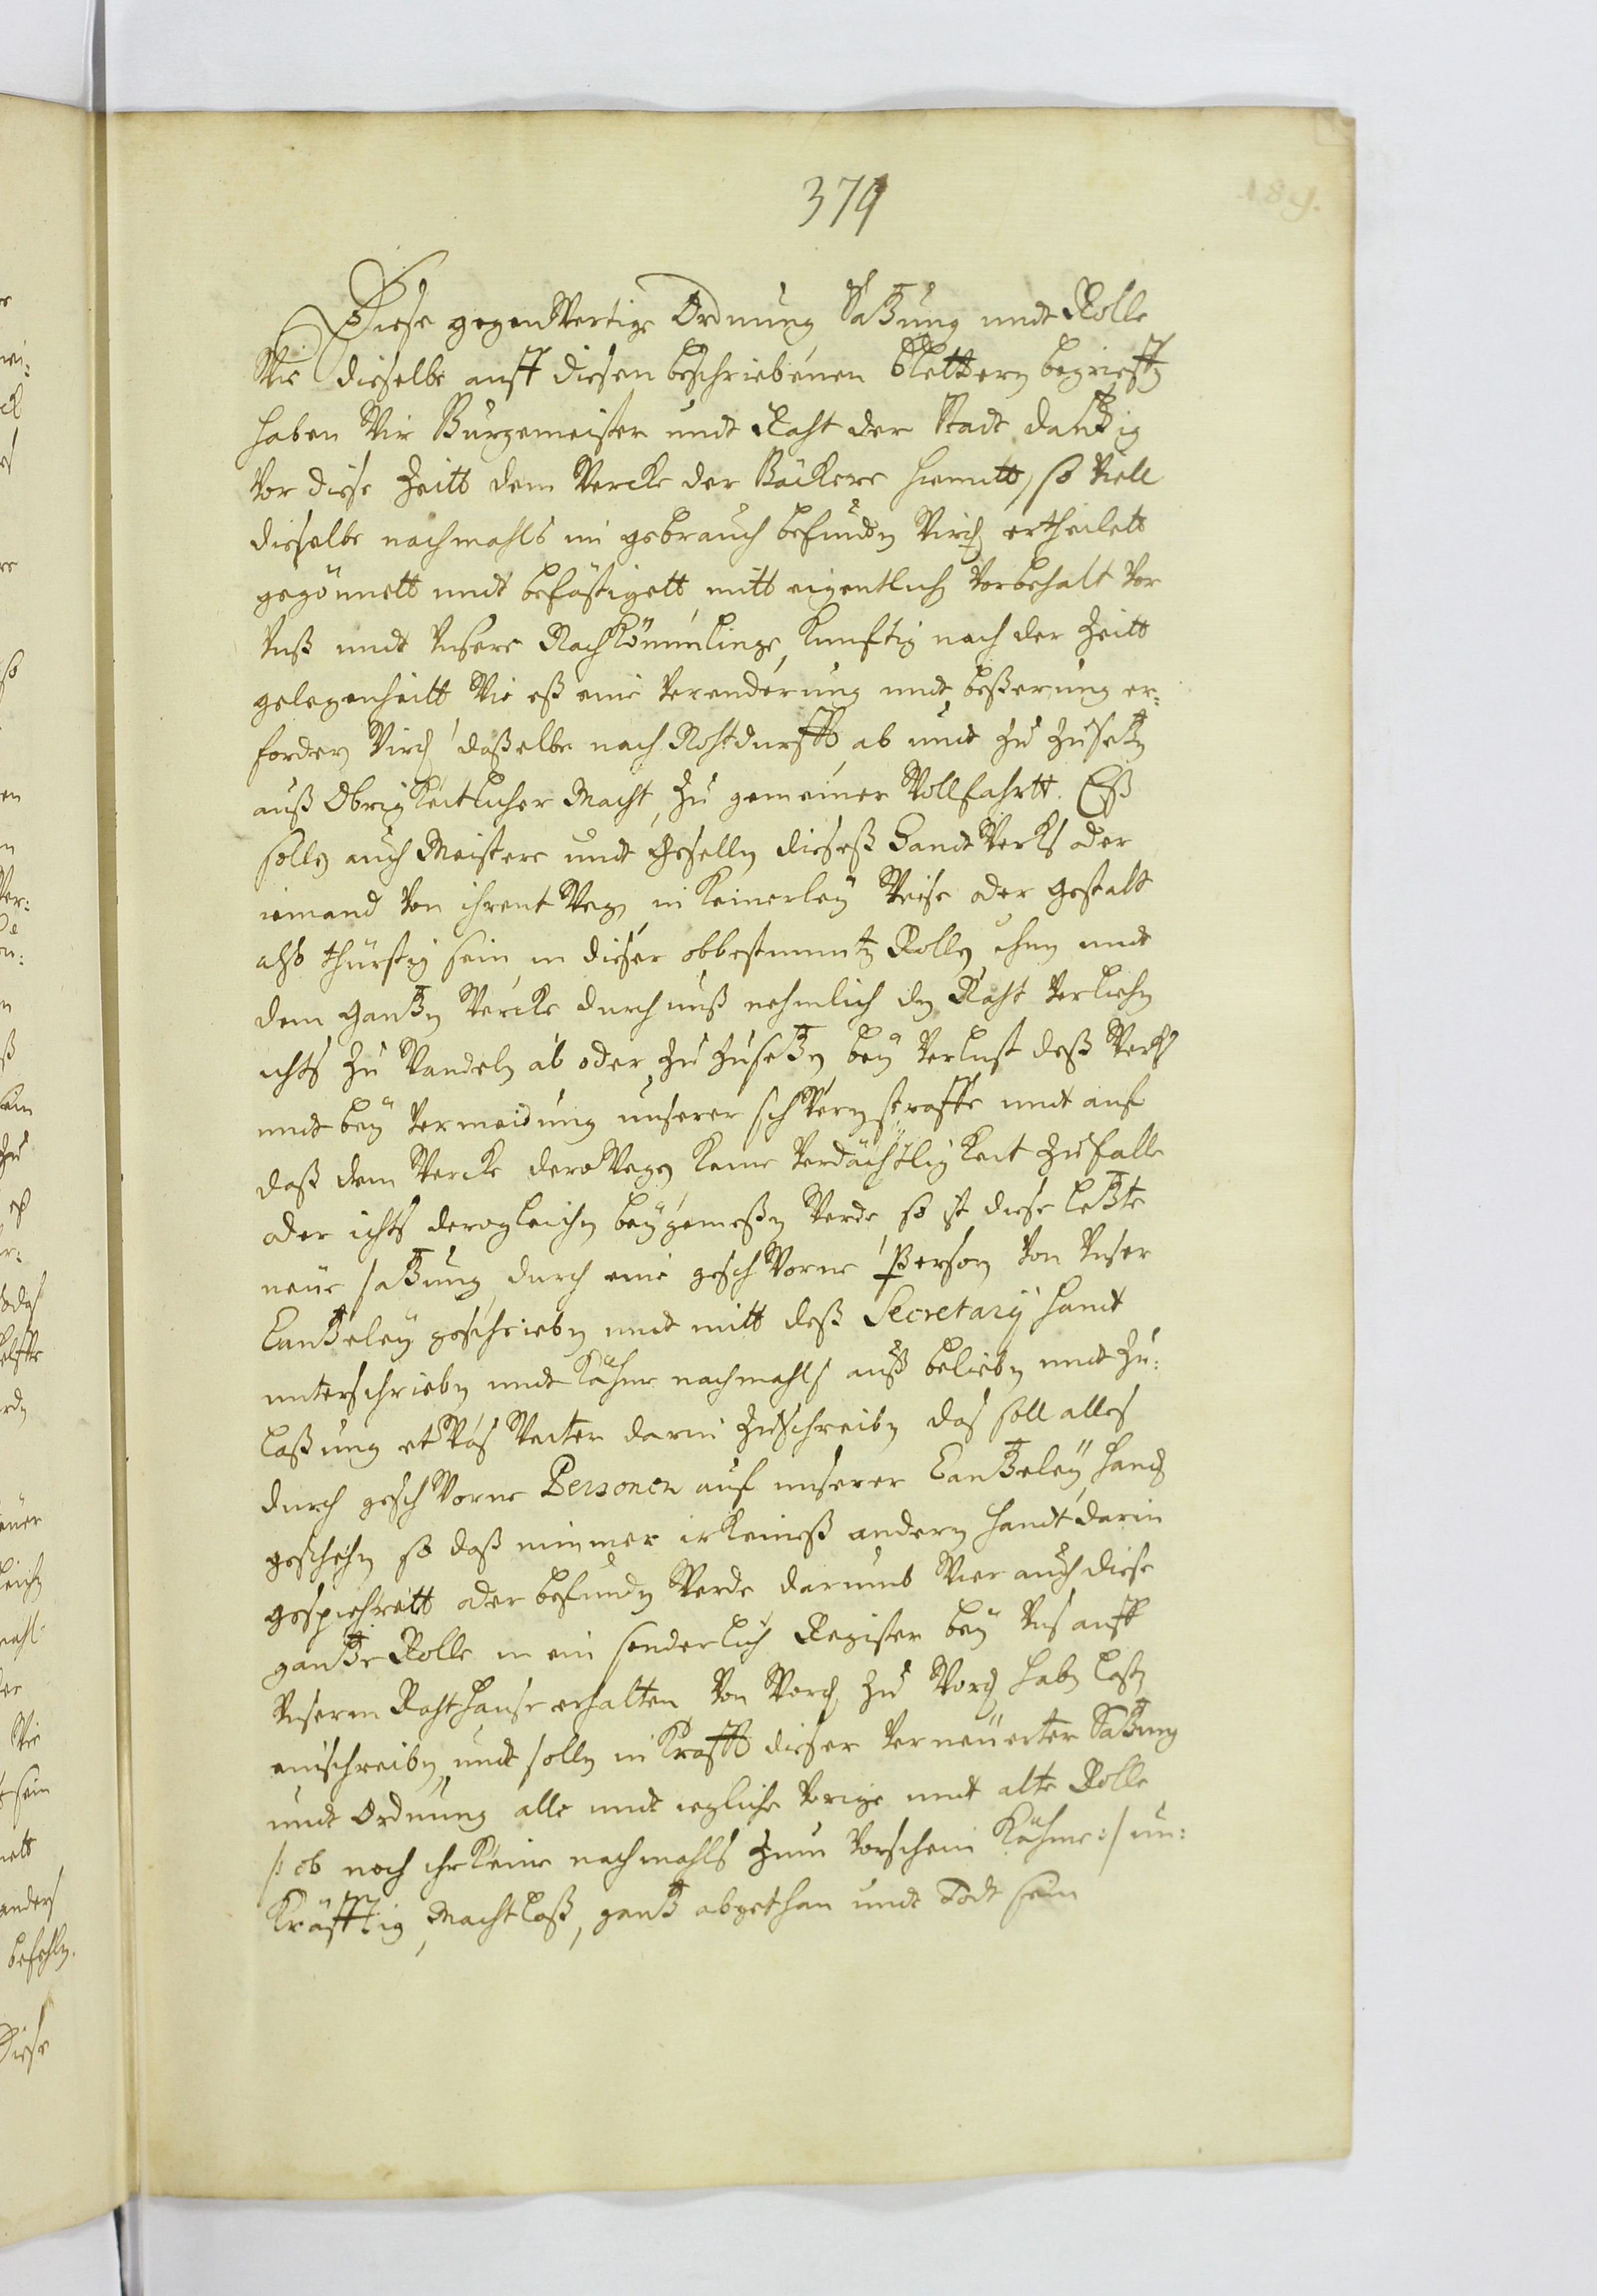 379
189.
Diese gegenwertige Ordnung Satzung undt Rolle
Wie dieselbe auff diesen beschriebenen blettern begriefft
haben Wir Burgemeister undt Raht der Stadt Dantzig
Vor diese Zeitt dem Wercke der Bäckere hiemitt, so Viell
dieselbe nachmahls im gebrauch befunden Wird, ertheilett
gegönnett undt befästigett, mitt eigentlich Vorbehalt Vor
Vnß undt Vnsere Nachkömmlinge, kunftig nach der Zeitt
gelegenheitt Wie eß eine Verenderung undt beßerung er:
fordern Wird, daßelbe nach Nohtdurfft ab undt zu Zusetzen
auß Obrigkeitlicher Macht, Zu gemeiner Wollfahrtt. Eß
sollen auch Meistere undt Gesellen dieseß Handtwerks oder
iemand Von ihrentwegen in keinerleÿ Weise oder Gestalt
also thürstig sein, in dieser obbestimmten Rollen ihnen undt
dem Gantzen Wercke durch unß nehmlich den Raht Verliehen
ichts Zu Wandeln ab oder Zu Zusetzen, beÿ Verlust deß Wercks
undt beÿ Vermeidung unserer schweren straffe undt auf
daß dem Wercke deroWegen keine Verdächtligkeit Zufalle
oder ichts derogleichen beÿgemeßen Werde, so ist diese letzte
neue satzung durch eine geschworne Person Von Vnser
Cantzeleÿ geschrieben undt mitt deß Secretarÿ handt
unterschrieben undt kähme nachmahls auß belieben undt Zu:
laßung etwas Weiter darin Zuschreiben das soll alles
durch geschworne Personen auf unserer Cantzeleÿ handt
geschehen so daß nimmer irkeineß andern handt darin
gespiehrett oder befunden Werde darumb Wier auch diese
gantze Rolle in ein sonderlich Register beÿ Vns auff
Vnserm Rahthause erhalten Von Word zu Word haben laßen
einschreiben, undt sollen in krafft dieser Verneuerten Satzung
undt Ordnung alle undt iegliche Vorige undt alte Rolle
/: ob noch ihrkeine nachmahls zum Vorschein kähme :/ un:
kräfftig, Machtloß, gantz abgethan undt Todt sein